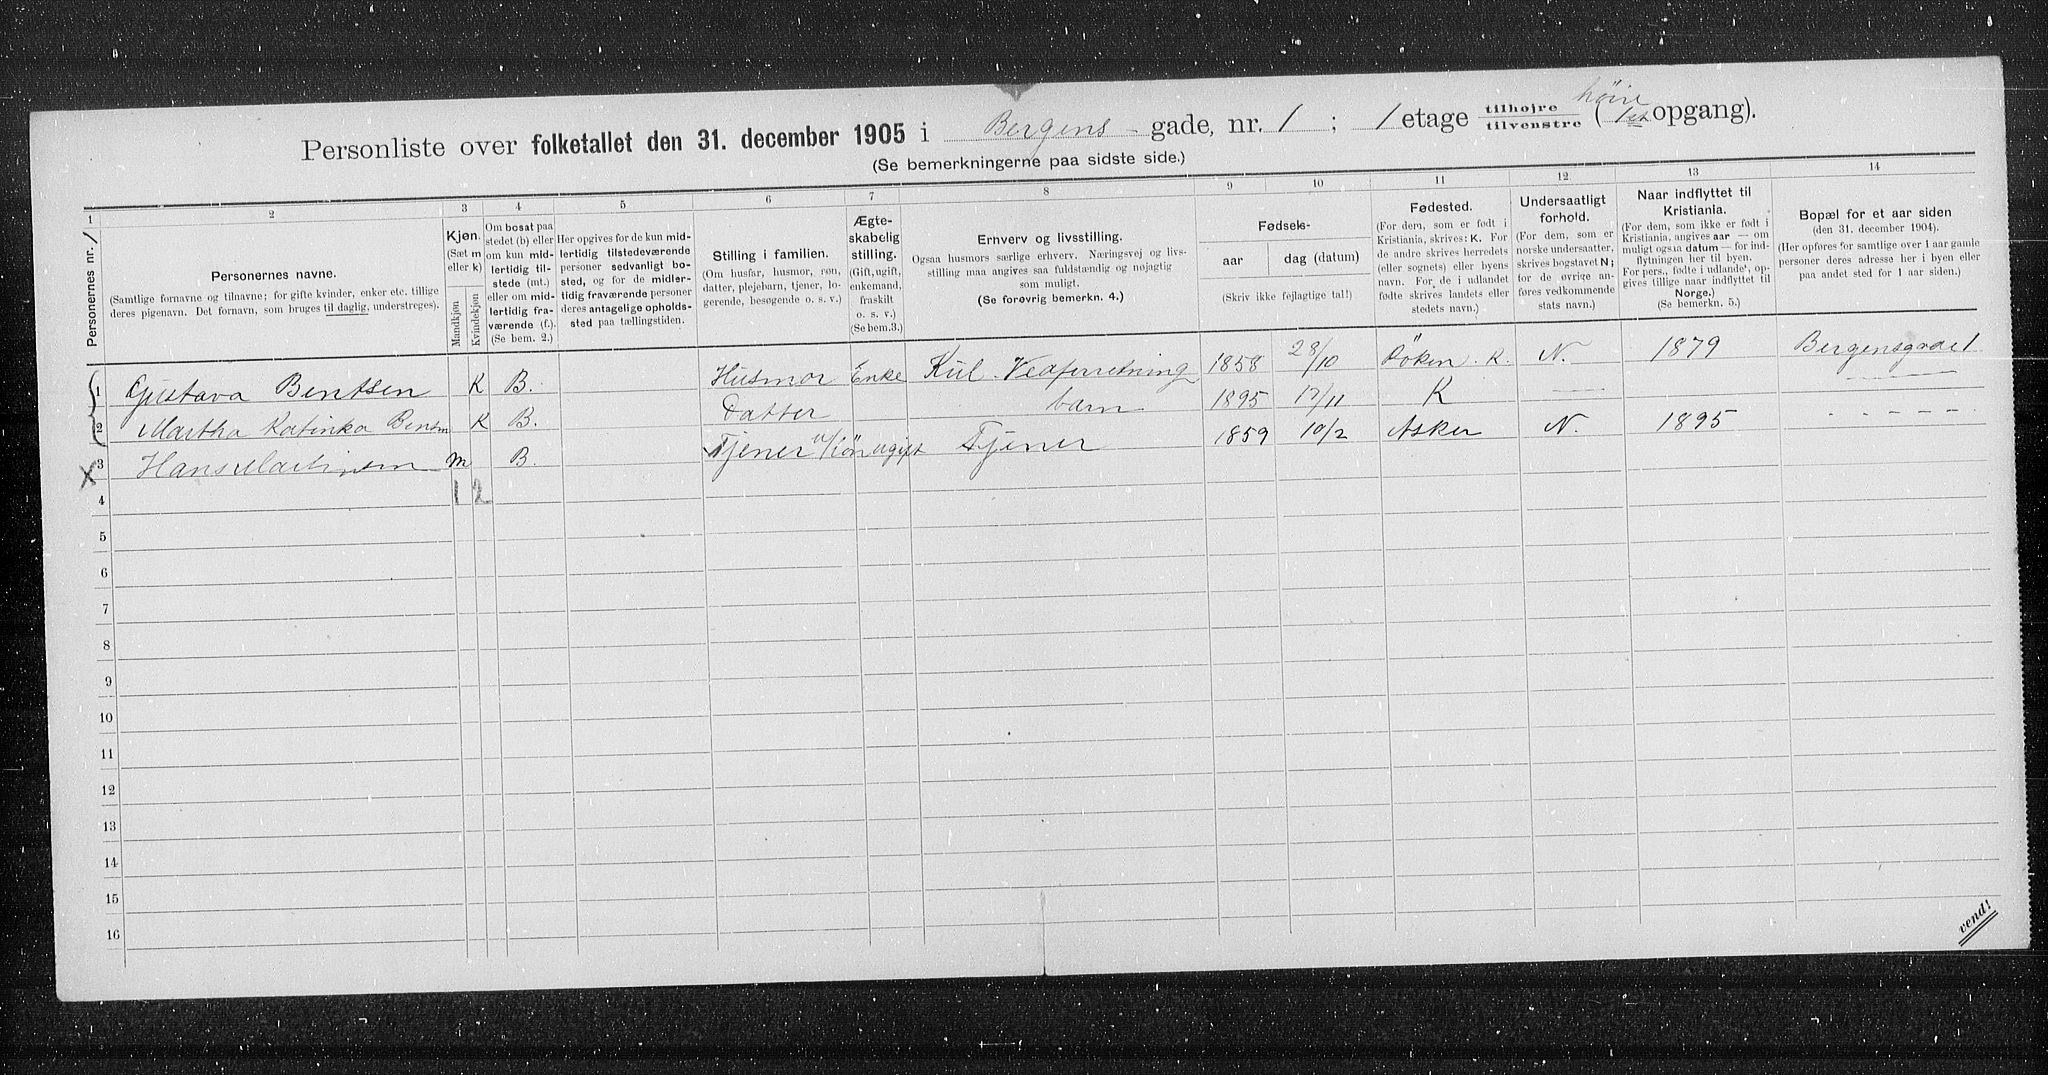 Personliste over folketallet den 31. december 1905 i Bergens - gade, nr. 1 ; 1 etage tilhøjre tilvenstre ( høire 1ste opgang).
(Se bemerkningerne paa sidste side.)
1 2 3 4 5 6 7 8 9 10 11 12 13 14
Personernes nr.
Personernes navne.
(Samtlige fornavne og tilnavne; for gifte kvinder, enker etc. tillige
deres pigenavn. Det fornavn, som bruges til daglig, understreges).
Kjøn.
(Sæt m
eller k)
Mandkjøn
Kvindekjøn
Om bosat paa
stedet (b) eller
om kun mid-
lertidig til-
stede (mt.)
eller om mid-
lertidig fra-
værende (f.).
(Se bem. 2.)
Her opgives for de kun mid-
lertidig tilstedeværende
personer sedvanlig bo-
sted, og for de midler-
tidig fraværende personer
deres antagelige opholds-
sted paa tællingstiden.
Stilling i familien.
(Om husfar, husmor, søn,
datter, plejebarn, tjener, lo-
gerende, besøgende o. s. v.)
Ægte-
skabelig
stilling.
(Gift, ugift,
enkemand,
fraskilt
o. s. v.)
(Se bem.3.)
Erhverv og livsstilling.
Ogsaa husmors særlige erhverv. Næringsvej og livs-
stilling maa angives saa fuldstændig og nøjagtig
som muligt.
(Se forøvrig bemerkn. 4.)
Fødsels-
aar
dag (datum)
(Skriv ikke fejlagtige tal!)
Fødested.
(For dem, som er født i
Kristiania, skrives: K. For
de andre skrives herredets
(eller sognets) eller byens
navn. For de i udlandet
fødte skrives landets eller
stedets navn.)
Undersaatligt
forhold.
(For dem, som er
norske undersaatter,
skrives bogstavet N;
for de øvrige an-
føres vedkommende
stats navn.)
Naar indflyttet til
Kristiania.
(For dem, som ikke er født i
Kristiania, angives aar — om
muligt ogsaa datum — for ind-
flytningen her til byen.
For pers., fødte i udlandet, op-
gives tillige naar indflyttet til
Norge.)
(Se bemerkn. 5.)
Bopæl for et aar siden
(den 31. december 1904).
(Her opføres for samtlige over 1 aar gamle
personer deres adresse her i byen eller
paa andet sted for 1 aar siden.)
1 Gustava Bentsen K B. Husmor Enke Kul. Vedforretning 1858 28/10 Röken. K. N. 1879 Bergensgade 1
2 Martha Katinka Bentsen K B. Datter barn 1895 17/11 K — — — — —
3 X Hans Martinsen m B. Tjener ugift Tjener 1859 10/2 Asker N. 1895 — — — — —
4 1 2
5
6
7
8
9
10
11
12
13
14
15
16
vend!